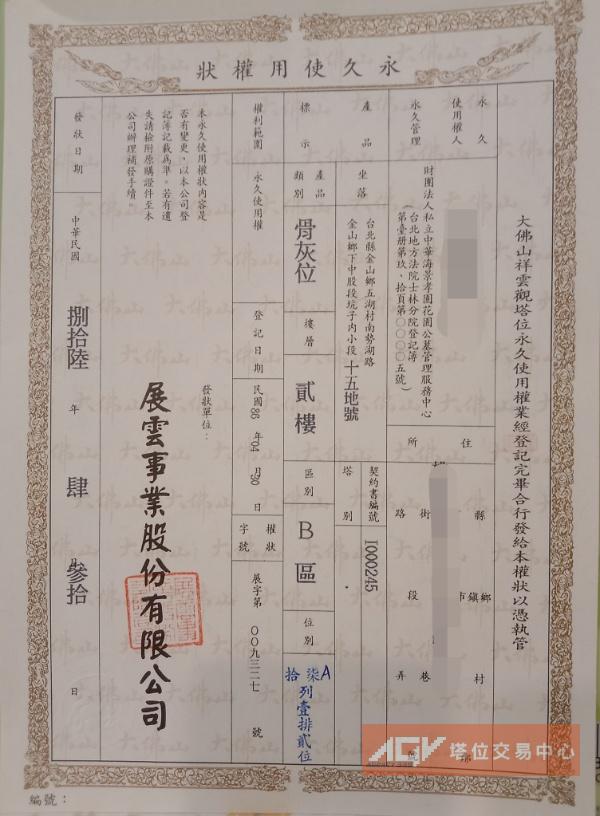 永久使用權狀
大佛山祥雲觀塔位永久使用權業經登記完畢合行發給本權狀以憑執管
永久
使用權人
住
所
縣
鄉
鎮
市
村
路
街
段
巷
弄
號
永久管理
財團法人私立中華海景孝園花園公墓管理服務中心
(台北地方法院士林分院登記簿
第壹册第玖、拾頁第〇〇〇〇五號)
產品
坐落
台北縣金山鄉五湖村南勢湖路
金山鄉下中股段坑子內小段十五地號
契約書編號
I000245
塔別
標示
產品
類別
骨灰位
樓層
貳樓
區別
B區
位別
A柒列壹排貳位
拾
權利範圍
永久使用權
登記日期
民國88年04月30日
權狀
字號
展字第〇〇九三二七號
本永久使用權狀內容是
否有變更，以本公司登
記簿記載爲準。若有遺
失請檢附原購證件至本
公司辦理補發手續。
發狀單位：
展雲事業股份有限公司
發狀日期
中華民國
捌拾陸年肆月參拾日
編號：
ACY 塔位交易中心